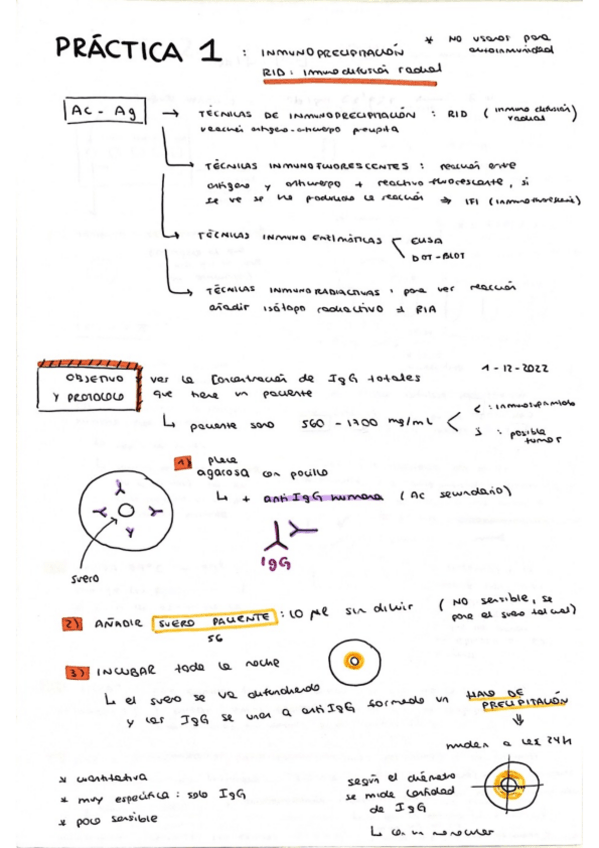 PRÁCTICA 1 : INMUNOPRECIPITACIÓN
* NO usamos para autoinmunidad
RID: inmunodifusión radial
Ac - Ag
→ TÉCNICAS DE INMUNOPRECIPITACIÓN : RID (inmunodifusión radial)
reacción antígeno-anticuerpo precipita
→ TÉCNICAS INMUNOFLUORESCENTES : reacción entre
antígeno y anticuerpo + reactivo fluorescente, si
se ve se ha producido la reacción ⇒ IFI (inmunofluorescencia)
→ TÉCNICAS INMUNO ENZIMÁTICAS < ELISA
DOT-BLOT
→ TÉCNICAS INMUNORADIACTIVAS : para ver reacción
añadir isótopo radiactivo ⇒ RIA
1-12-2022
OBJETIVO
Y PROTOCOLO
ver la concentración de IgG totales
que tiene un paciente
↳ paciente sano 560 - 1700 mg/mL
< : inmunosuprimido
> : posible
tumor
1) placa
agarosa con pocillo
↳ + anti IgG humana (Ac secundario)
IgG
suero
2) AÑADIR SUERO PACIENTE : 10 µL sin diluir (NO sensible, se
pone el suero tal cual)
56
3) INCUBAR toda la noche
↳ el suero se va difundiendo
y las IgG se unen a anti IgG formando un HALO DE
PRECIPITACIÓN
⇓
miden a las 24h
* cuantitativa
* muy específica : solo IgG
* poco sensible
según el diámetro
se mide cantidad
de IgG
↳ con un monocular